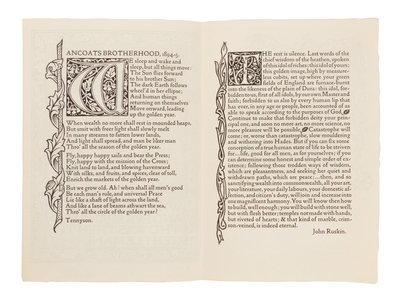 ANCOATS BROTHERHOOD, 1894-5.
WE sleep and wake and
sleep, but all things move:
The Sun flies forward
to his brother Sun;
The dark Earth follows
wheel'd in her ellipse;
And human things
returning on themselves
Move onward, leading
up the golden year.
When wealth no more shall rest in mounded heaps,
But smit with freer light shall slowly melt
In many streams to fatten lower lands,
And light shall spread, and man be liker man
Thro' all the season of the golden year.
Fly, happy happy sails and bear the Press;
Fly, happy with the mission of the Cross;
Knit land to land, and blowing havenward
With silks, and fruits, and spices, clear of toll,
Enrich the markets of the golden year.
But we grow old. Ah! when shall all men's good
Be each man's rule, and universal Peace
Lie like a shaft of light across the land,
And like a lane of beams athwart the sea,
Thro' all the circle of the golden year?
Tennyson.
THE rest is silence. Last words of the
chief wisdom of the heathen, spoken
of this idol of riches; this idol of yours;
this golden image, high by measure-
less cubits, set up where your green
fields of England are furnace-burnt
into the likeness of the plain of Dura: this idol, for-
bidden to us, first of all idols, by our own Master and
faith; forbidden to us also by every human lip that
has ever, in any age or people, been accounted of as
able to speak according to the purposes of God.
Continue to make that forbidden deity your prin-
cipal one, and soon no more art, no more science, no
more pleasure will be possible. Catastrophe will
come; or, worse than catastrophe, slow mouldering
and withering into Hades. But if you can fix some
conception of a true human state of life to be striven
for--life, good for all men, as for yourselves; if you
can determine some honest and simple order of ex-
istence; following those trodden ways of wisdom,
which are pleasantness, and seeking her quiet and
withdrawn paths, which are peace;...then, and so
sanctifying wealth into commonwealth, all your art,
your literature, your daily labours, your domestic af-
fection, and citizen's duty, will join and increase into
one magnificent harmony. You will know then how
to build, well enough; you will build with stone well,
but with flesh better; temples not made with hands,
but riveted of hearts; & that kind of marble, crim-
son-veined, is indeed eternal.
John Ruskin.